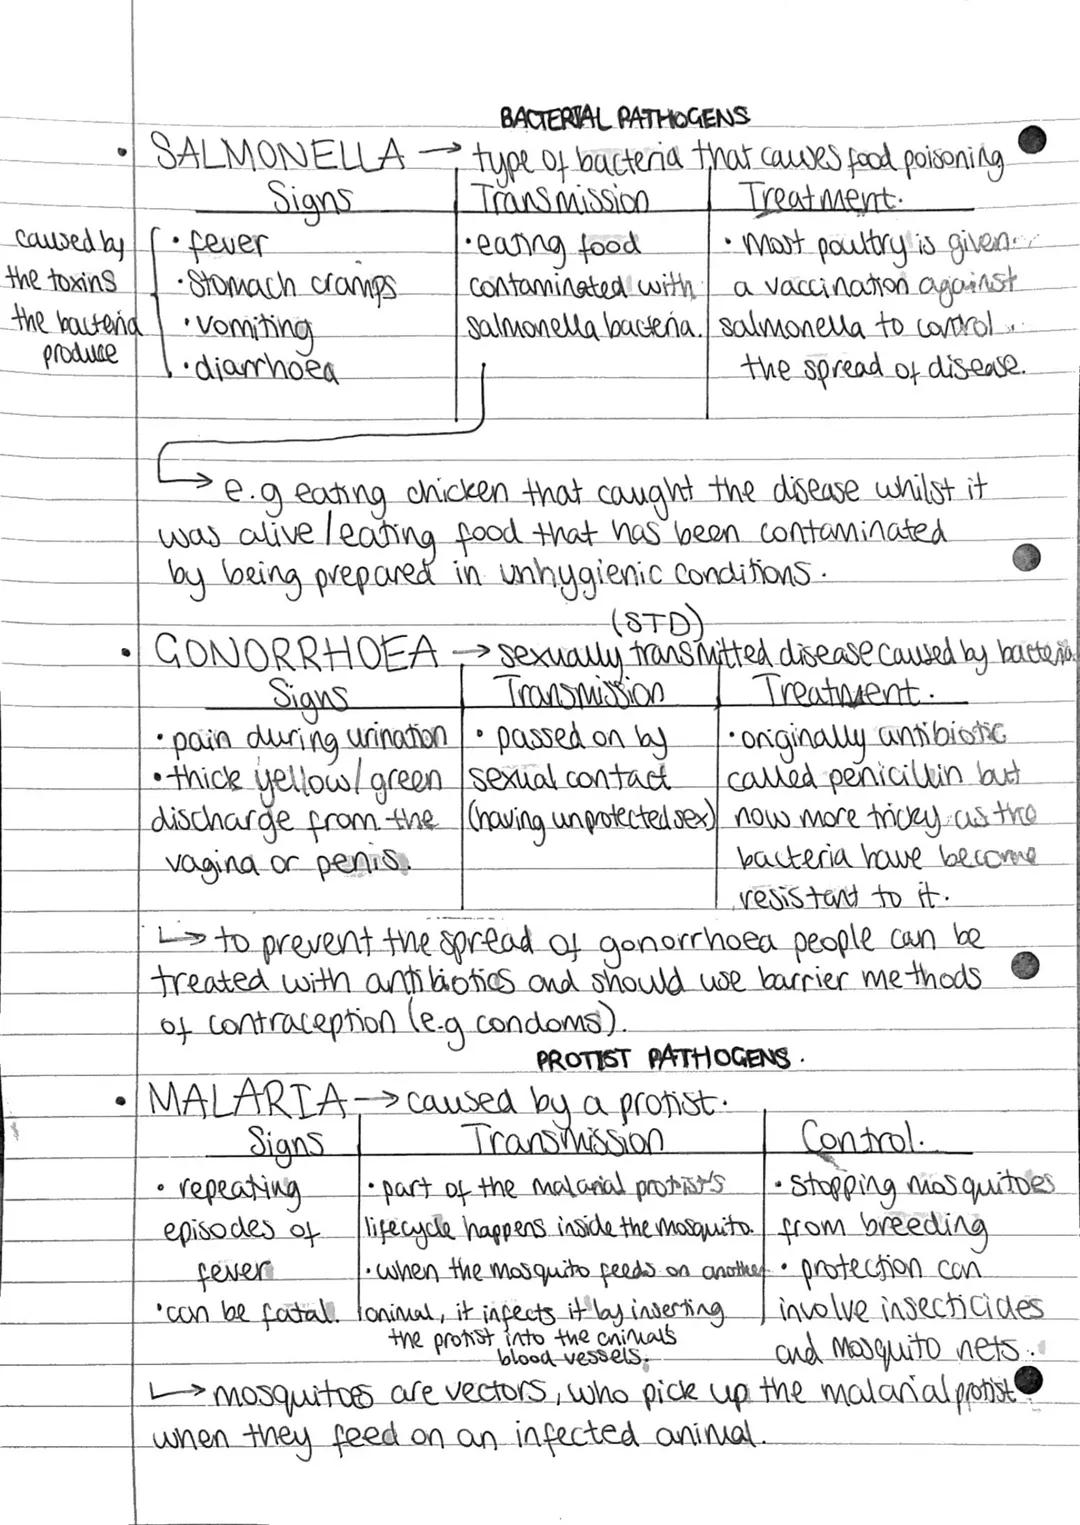 BACTERIAL PATHOGENS
• SALMONELLA → type of bacteria that causes food poisoning
Signs Transmission Treatment.
caused by
the toxins
the bacteria
produce
• fever
• Stomach cramps
• vomiting
• diarrhoea
• eating food
contaminated with
salmonella bacteria.
• most poultry is given
a vaccination against
salmonella to control
the spread of disease.
→ e.g eating chicken that caught the disease whilst it
was alive / eating food that has been contaminated
by being prepared in unhygienic conditions.
(STD)
• GONORRHOEA → sexually transmitted disease caused by bacteria
Signs Transmission Treatment.
• pain during urination
• thick yellow/green
discharge from the
vagina or penis.
• passed on by
sexual contact
(having unprotected sex)
• originally antibiotic
called penicillin but
now more tricky as the
bacteria have become
resistant to it.
↳ to prevent the spread of gonorrhoea people can be
treated with antibiotics and should use barrier methods
of contraception (e.g condoms).
PROTIST PATHOGENS.
• MALARIA → caused by a protist.
Signs Transmission Control.
• repeating
episodes of
fever
• can be fatal.
• part of the malarial protist's
lifecycle happens inside the mosquito.
• when the mosquito feeds on another
animal, it infects it by inserting
the protist into the animals
blood vessels.
• Stopping mosquitoes
from breeding
• protection can
involve insecticides
and mosquito nets.
↳ mosquitoes are vectors, who pick up the malarial protist
when they feed on an infected animal.